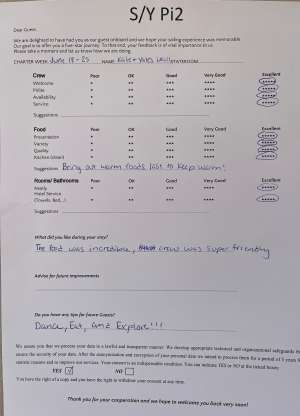 S/Y Pi2
Dear Guest,
We are delighted to have had you as our guest onboard and we hope your sailing experience was memorable.
Our goal is to offer you a five-star journey. To that end, your feedback is of vital importance to us.
Please take a moment and let us know how we are doing.
CHARTER WEEK: June 18-25 NAME:
Crew Poor OK Good Very Good Excellent
Welcome * ** *** **** *****
Polite * ** *** **** *****
Availability * ** *** **** *****
Service * ** *** **** *****
Suggestions:
Food Poor OK Good Very Good Excellent
Presentation * ** *** **** *****
Variety * ** *** **** *****
Quality * ** *** **** *****
Kitchen (clean) * ** *** **** *****
Suggestions: Bring out warm foods last to keep warm!
Rooms/ Bathrooms Poor OK Good Very Good Excellent
Ready * ** *** **** *****
Hotel Service * ** *** **** *****
(Towels, Bed...) * ** *** **** *****
Suggestions:
What did you like during your stay?
The food was incredible, crew was super friendly
Advise for future improvements
Do you have any tips for future Guests?
Dance, Eat, and Explore!!!
We assure you that we process your data in a lawful and transparent manner. We develop appropriate technical and organizational safeguards
ensure the security of your data. After the anonymization and encryption of your personal data we intend to process them for a period of 5 years
statistic reasons and to improve our services. Your consent is an indispensable condition. You can indicate YES or NO at the linked boxes:
YES NO
You have the right of a copy and you have the right to withdraw your consent at any time.
Thank you for your cooperation and we hope to welcome you back very soon!